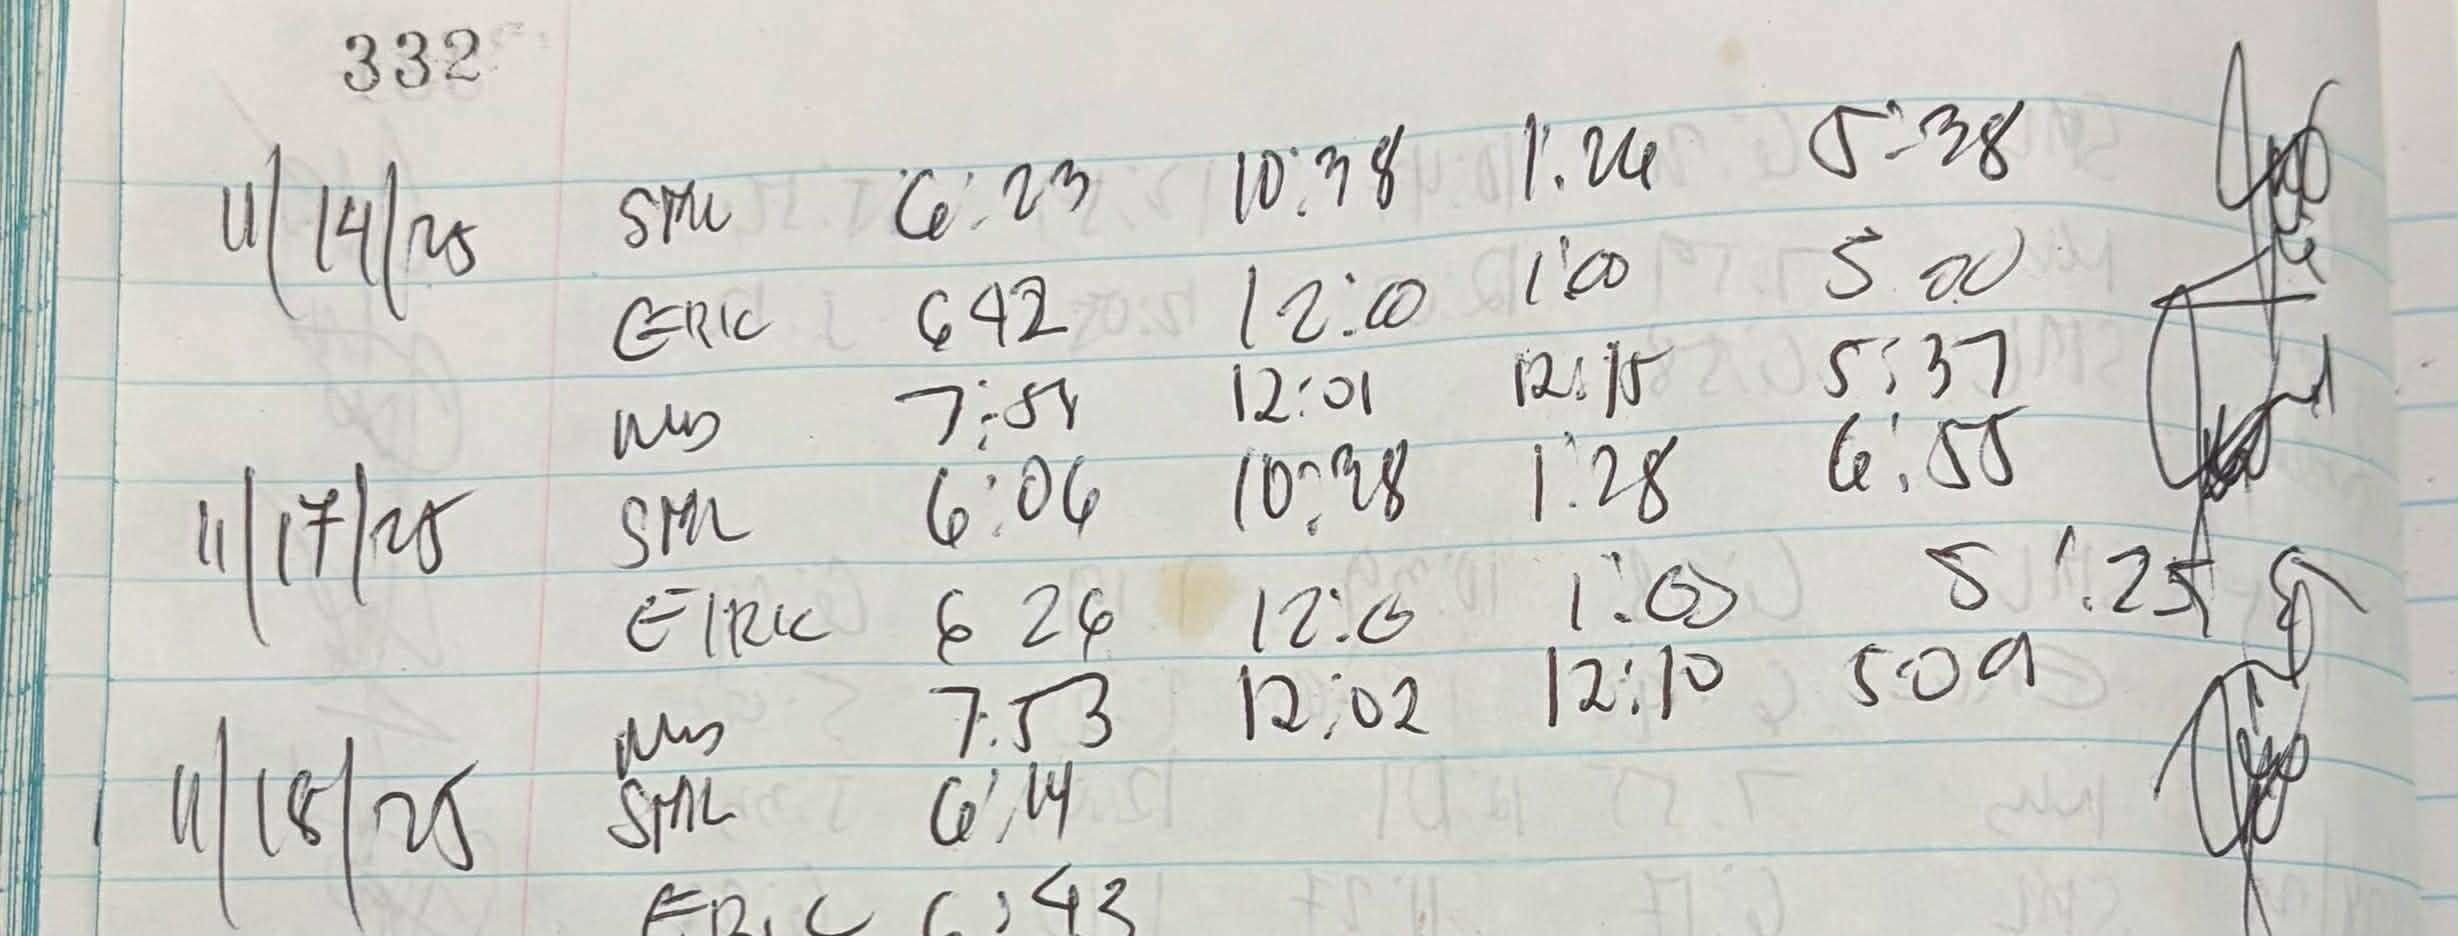 332
11/14/25 SML 6:23 10:38 1:24 5:38
ERIC 642 12:0 1:00 5 00
7:54 12:01 12:15 5:37
11/17/25 SML 6:06 10:38 1:28 6:55
EIRIC 6 26 12:0 1:00 5:25
7:53 12:02 12:10 5:09
11/18/25 SML 6:14
ERIC 6:43